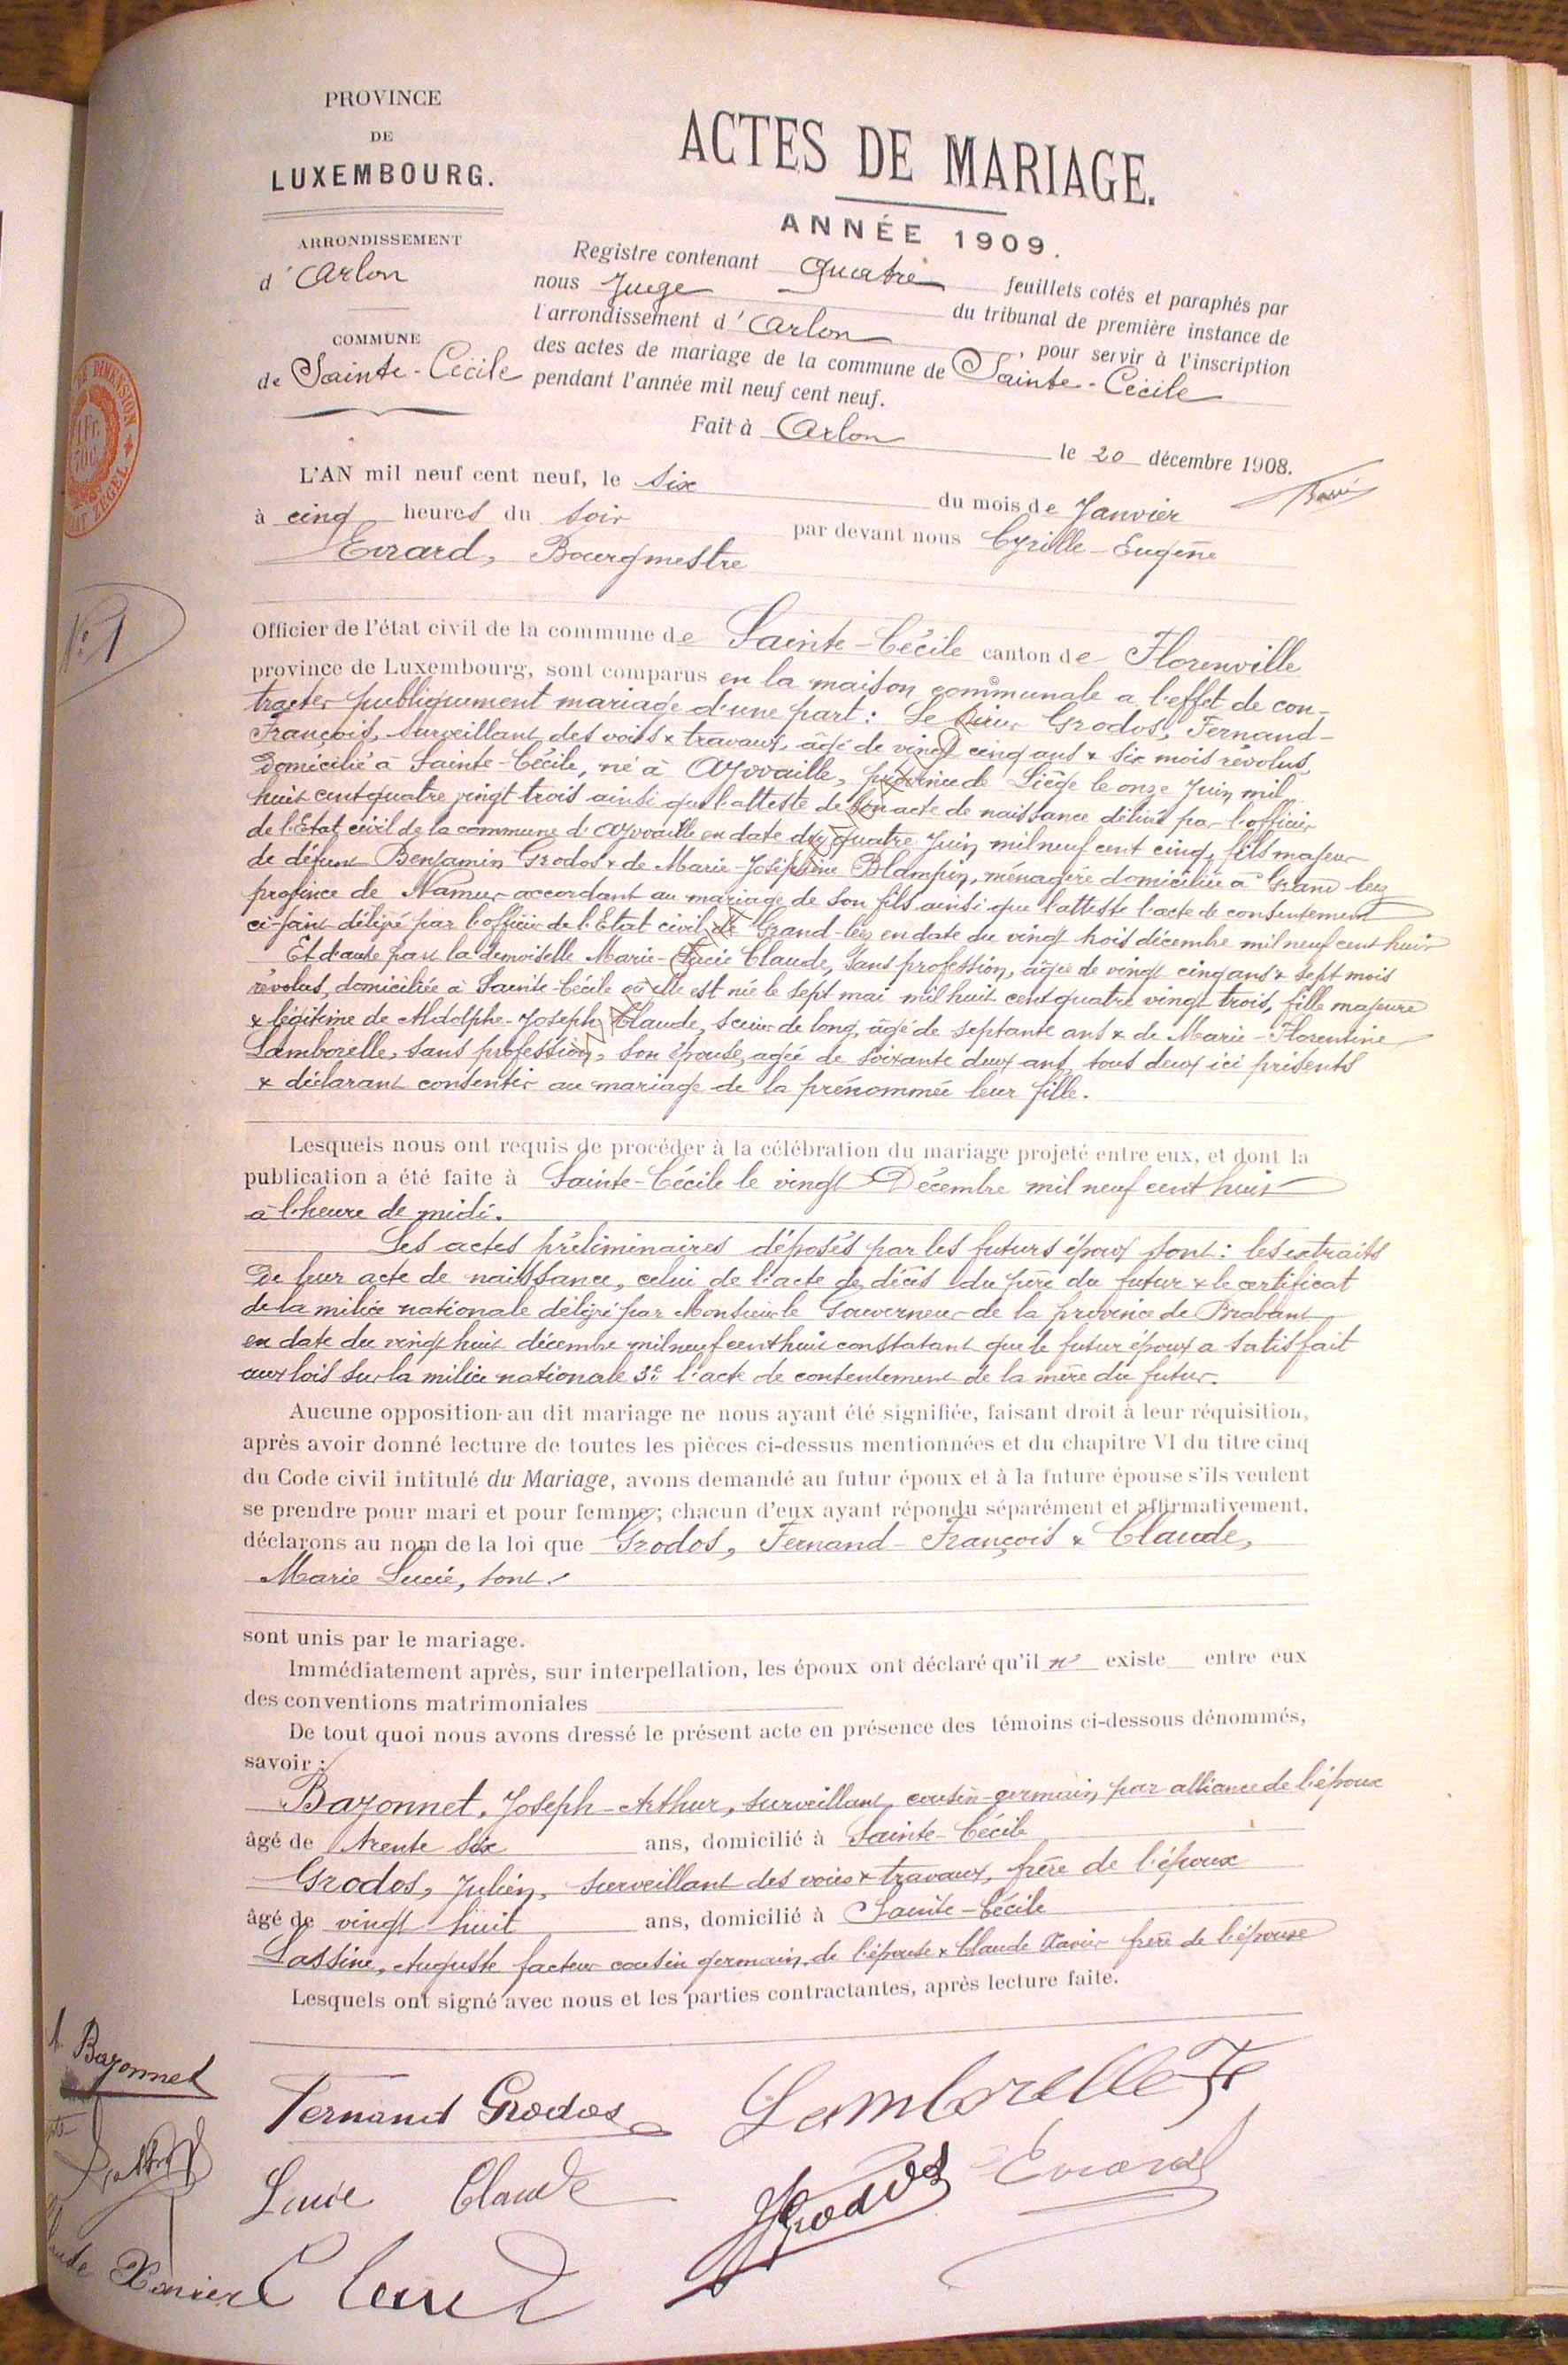 PROVINCE
DE
LUXEMBOURG.
ARRONDISSEMENT
d' Arlon
COMMUNE
de Sainte-Cécile
ACTES DE MARIAGE.
ANNÉE 1909.
Registre contenant quatre feuillets cotés et paraphés par
nous Juge du tribunal de première instance de
l'arrondissement d' Arlon, pour servir à l'inscription
des actes de mariage de la commune de Sainte-Cécile
pendant l'année mil neuf cent neuf.
Fait à Arlon le 20 décembre 1908.
L'AN mil neuf cent neuf, le six du mois de Janvier
à cinq heures du soir par devant nous Cyrille-Eugène
Evrard, Bourgmestre
N° 1
Officier de l'état civil de la commune de Sainte-Cécile canton de Florenville
province de Luxembourg, sont comparus en la maison communale a l'effet de con-
tracter publiquement mariage d'une part : Le sieur Grodos, Fernand-
François, surveillant des voies & travaux, âgé de vingt cinq ans & six mois révolus,
domicilié à Sainte-Cécile, né à Aywaille, province de Liège le onze Juin mil
huit cent quatre vingt trois ainsi que l'atteste de son acte de naissance délivré par l'officier
de l'Etat civil de la commune d'Aywaille en date du quatre Juin mil neuf cent cinq, fils majeur
de défunt Benjamin Grodos & de Marie-Joséphine Blampin, ménagère domiciliée à Grand leez
province de Namur accordant au mariage de son fils ainsi que l'atteste l'acte de consentement
ci-joint délivré par l'officier de l'Etat civil de Grand-leez en date du vingt trois décembre mil neuf cent huit
Et d'autre part la demoiselle Marie-Lucie Claude, sans profession, âgée de vingt cinq ans & sept mois
révolus, domiciliée à Sainte-Cécile où elle est née le sept mai mil huit cent quatre vingt trois, fille majeure
& légitime de Adolphe-Joseph Claude, scieur de long, âgé de septante ans & de Marie-Florentine
Lamborelle, sans profession, son épouse, agée de soixante deux ans, tous deux ici présents
& déclarant consentir au mariage de la prénommée leur fille.
Lesquels nous ont requis de procéder à la célébration du mariage projeté entre eux, et dont la
publication a été faite à Sainte-Cécile le vingt Décembre mil neuf cent huit
à l'heure de midi.
Les actes préliminaires déposés par les futurs époux sont : les extraits
de leur acte de naissance, celui de l'acte de décès du père du futur & le certificat
de la milice nationale délivré par Monsieur le Gouverneur de la province de Brabant
en date du vingt huit décembre mil neuf cent huit constatant que le futur époux a satisfait
aux lois sur la milice nationale 3° l'acte de consentement de la mère du futur.
Aucune opposition au dit mariage ne nous ayant été signifiée, faisant droit à leur réquisition,
après avoir donné lecture de toutes les pièces ci-dessus mentionnées et du chapitre VI du titre cinq
du Code civil intitulé du Mariage, avons demandé au futur époux et à la future épouse s'ils veulent
se prendre pour mari et pour femme; chacun d'eux ayant répondu séparément et affirmativement,
déclarons au nom de la loi que Grodos, Fernand-François & Claude,
Marie Lucie, sont
sont unis par le mariage.
Immédiatement après, sur interpellation, les époux ont déclaré qu'il n' existe entre eux
des conventions matrimoniales
De tout quoi nous avons dressé le présent acte en présence des témoins ci-dessous dénommés,
savoir :
Bayonnet, Joseph-Arthur, surveillant, cousin-germain par alliance de l'époux
âgé de trente six ans, domicilié à Sainte-Cécile
Grodos, Julien, surveillant des voies & travaux, frère de l'époux
âgé de vingt huit ans, domicilié à Sainte-Cécile
Lassine, Auguste facteur cousin germain de l'épouse & Claude Xavier frère de l'épouse
Lesquels ont signé avec nous et les parties contractantes, après lecture faite.
Bayonnet
Fernand Grodos Lamborelle Fe
Lucie Claude JGrodos Evrard
Xavier Claude